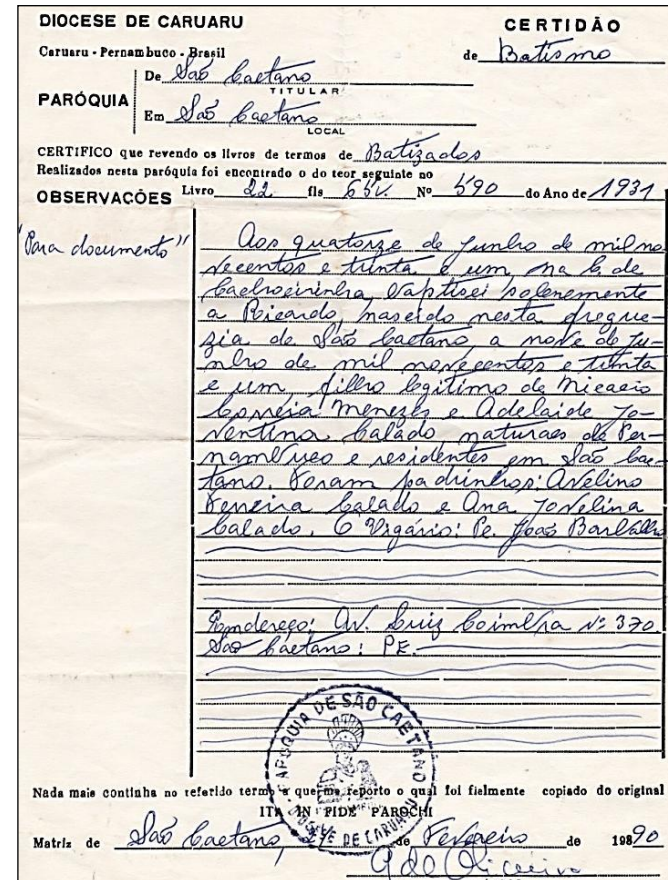 DIOCESE DE CARUARU
CERTIDÃO
Caruaru - Pernambuco - Brasil
de Batismo
De São Caetano
TITULAR
PARÓQUIA
Em São Caetano
LOCAL
CERTIFICO que revendo os livros de termos de Batizados
Realizados nesta paróquia foi encontrado o do teor seguinte no
OBSERVAÇÕES Livro 22 fls 65v. Nº 590 do Ano de 1931
"Para documento"
Aos quatorze de Junho de mil no
vecentos e trinta e um, na C. de
Cachoeirinha, baptisei solenemente
a Ricardo, nascido nesta fregue-
zia de São Caetano a nove de Ju-
nho de mil novecentos e trinta
e um filho legitimo de Micacio
Correia Menezes e Adelaide Jo-
ventina Calado naturaes de Per-
nambuco e residentes em São Cae-
tano. Foram padrinhos: Avelino
Ferreira Calado e Ana Jovelina
Calado. O Vigário: Pe. João Barbalho
Endereço: Av. Luiz Coimbra Nº 370
São Caetano: PE.
PAROQUIA DE SÃO CAETANO
DIOCESE DE CARUARU
Nada mais continha no referido termo a que me reporto o qual foi fielmente copiado do original
ITA IN FIDE PAROCHI
Matriz de São Caetano, de Fevereiro de 1990